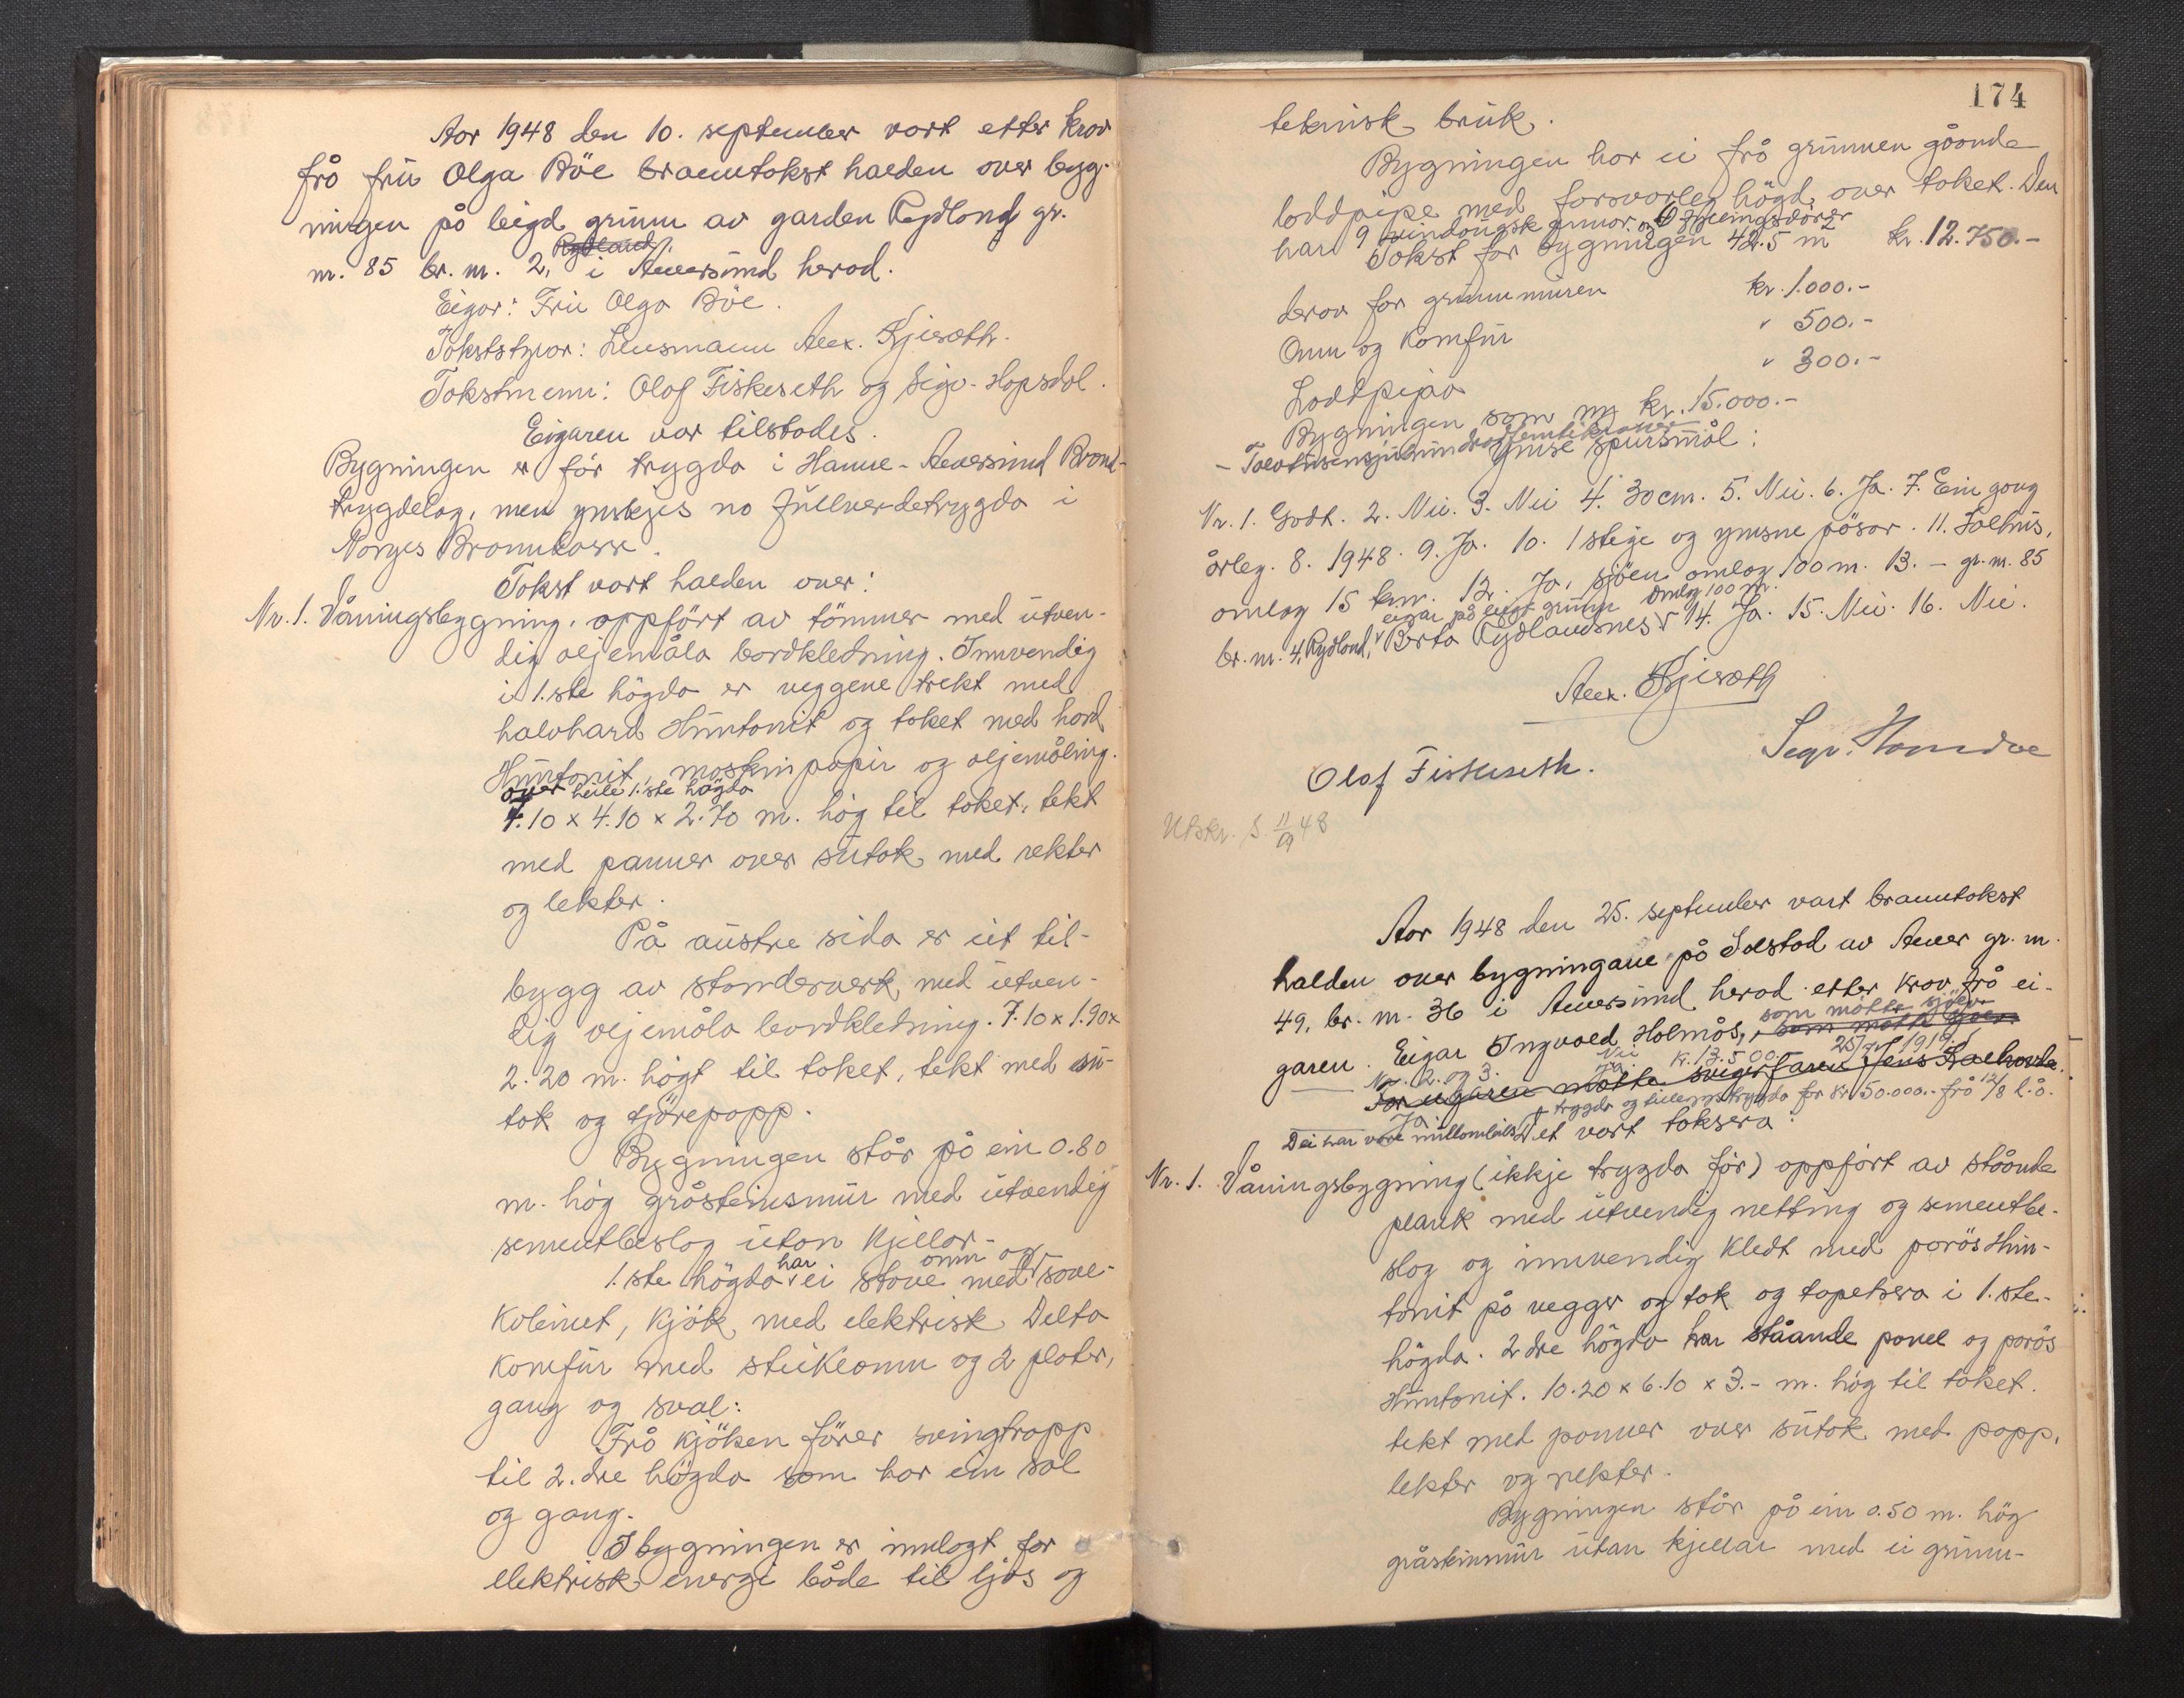 Aar 1948 den 10. september vart etter krav
frå frü Olga Böe branntakst halden over byg-
ningen på leigd grünn av garden Rydland gr.
nr. 85 br. nr. 2, i Alversünd herad.
Eigar: Frü Olga Böe.
Takststyrar: Lensmann Alex. Kjieræth.
Takstmenn: Olaf Fiskeseth og Sigv. Hopsdal.
Eigaren var tilstades.
Bygningen er för trygda i Hamre-Alversünd Brann-
trygdelag, men ynskjes no füllverdetrygda i
Norges Brannkasse.
Takst vart halden over:
Nr. 1. Våningsbygning, oppfört av tömmer med ütven-
dig oljemåla bordkledning. Innvendig
i 1.ste högda er veggene trekt med
halvhard Hüntonit og taket med hard
Hüntonit, maskinpapir og oljemåling.
over heile 1.ste högda
7.10 x 4.10 x 2.70 m. hög til taket, tekt
med panner over sütak med rekter
og lekter.
På aüstre sida er eit til-
bygg av standerverk med ütven-
dig oljemåla bordkledning. 7.10 x 1.90 x
2.20 m. högt til taket, tekt med sü-
tak og tjörepapp.
Bygningen står på ein 0.80
m. hög gråsteinsmür med ütvendig
sementbeslag ütan kjellar.
har omn og
1.ste högda ei stove med sove-
kabinet, kjök med elektrisk Delta
komfür med steikeomn og 2 plater,
gang og sval:
Frå kjöken förer svingtrapp
til 2.dre högda som har ein sal
og gang.
I bygningen er innlagt for
elektrisk energi både til ljos og
174
teknisk brük.
Bygningen har ei frå grünnen gåande
loddpipe med forsvarleg högd over taket. Den
har 9 vindaügsk gluor. og 6 fyllingsdörer
Takst for bygningen 42.5 m² kr. 12.750.-
derav for grünnmüren kr. 1.000.-
Omn og Komfür " 500.-
Loddpipa " 300.-
Bygningen som ny kr. 15.000.-
- Tolvtüsensjühündreogfemtikroner
Ymse spursmål:
Nr. 1. Godt. 2. Nei. 3. Nei 4. 30 cm. 5. Nei. 6. Ja. 7. Ein gong
årleg. 8. 1948. 9. Ja. 10. 1 stige og ymsne pösar. 11. Salhüs,
omlag 15 km. 12. Ja, sjöen omlag 100 m. 13. - gr. nr. 85
eigar på leigt grünn omlag 100 m.
br. nr. 4, Rydland, Berta Rydlandsnes 14. Ja. 15. Nei. 16. Nei.
Alex. Kjieræth
Olaf Fiskeseth.
Utskr. S. 11/9 48
Aar 1948 den 25. september vart branntakst
halden over bygningane på Solstad av Alver gr. nr.
49, br. nr. 36 i Alversünd herad etter krav frå ei-
som mötte sjölv
garen. Eigar Ingvald Holmås, som mötte sjölv
Nr. 2. og 3. Ja kr. 13.500 1919.
For eigaren mötte svigerfaren Jens
Ja trygda og tilleggstrygda for kr. 50.000.- frå 12/8 l.å.
Dei har vore millombels Det vart taksera:
Nr. 1. Våningsbygning (ikkje trygda för) oppfört av ståande
plank med ütvendig netting og sementbe-
slag og innvendig kledt med porös Hün-
tonit på vegger og tak og tapetsera i 1.ste-
högda. 2dre högda har ståande panel og porös
Hüntonit. 10.20 x 6.10 x 3.- m. hög til taket.
tekt med panner over sütak med papp,
lekter og rekter.
Bygningen står på ein 0.50 m. hög
gråsteinsmür ütan kjellar med ei grünn-